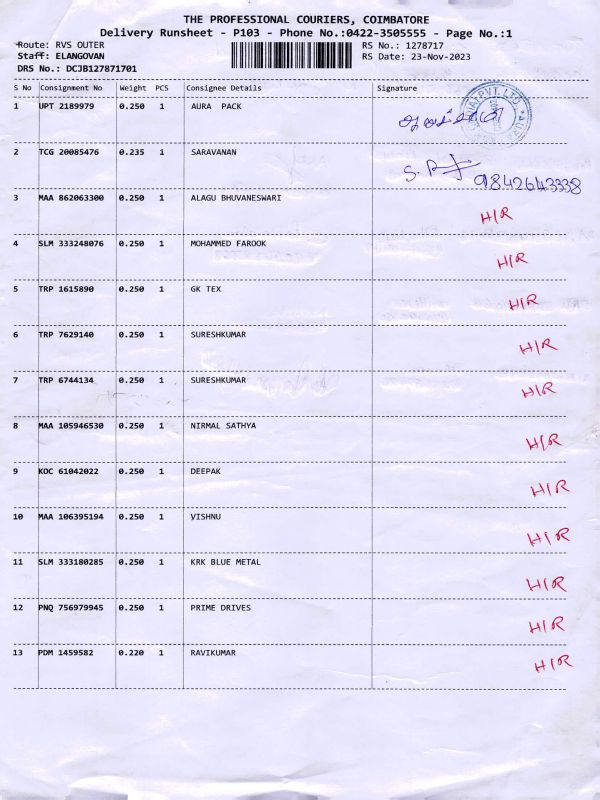 THE PROFESSIONAL COURIERS, COIMBATORE
Delivery Runsheet - P103 - Phone No.:0422-3505555 - Page No.:1
Route: RVS OUTER RS No.: 1278717
Staff: ELANGOVAN RS Date: 23-Nov-2023
DRS No.: DCJB127871701
S No Consignment No Weight PCS Consignee Details Signature
1 UPT 2189979 0.250 1 AURA PACK
2 TCG 20085476 0.235 1 SARAVANAN
9842643338
3 MAA 862063300 0.250 1 ALAGU BHUVANESWARI H/R
4 SLM 333248076 0.250 1 MOHAMMED FAROOK H/R
5 TRP 1615890 0.250 1 GK TEX H/R
6 TRP 7629140 0.250 1 SURESHKUMAR H/R
7 TRP 6744134 0.250 1 SURESHKUMAR H/R
8 MAA 105946530 0.250 1 NIRMAL SATHYA H/R
9 KOC 61042022 0.250 1 DEEPAK H/R
10 MAA 106395194 0.250 1 VISHNU H/R
11 SLM 333180285 0.250 1 KRK BLUE METAL H/R
12 PNQ 756979945 0.250 1 PRIME DRIVES H/R
13 PDM 1459582 0.220 1 RAVIKUMAR H/R